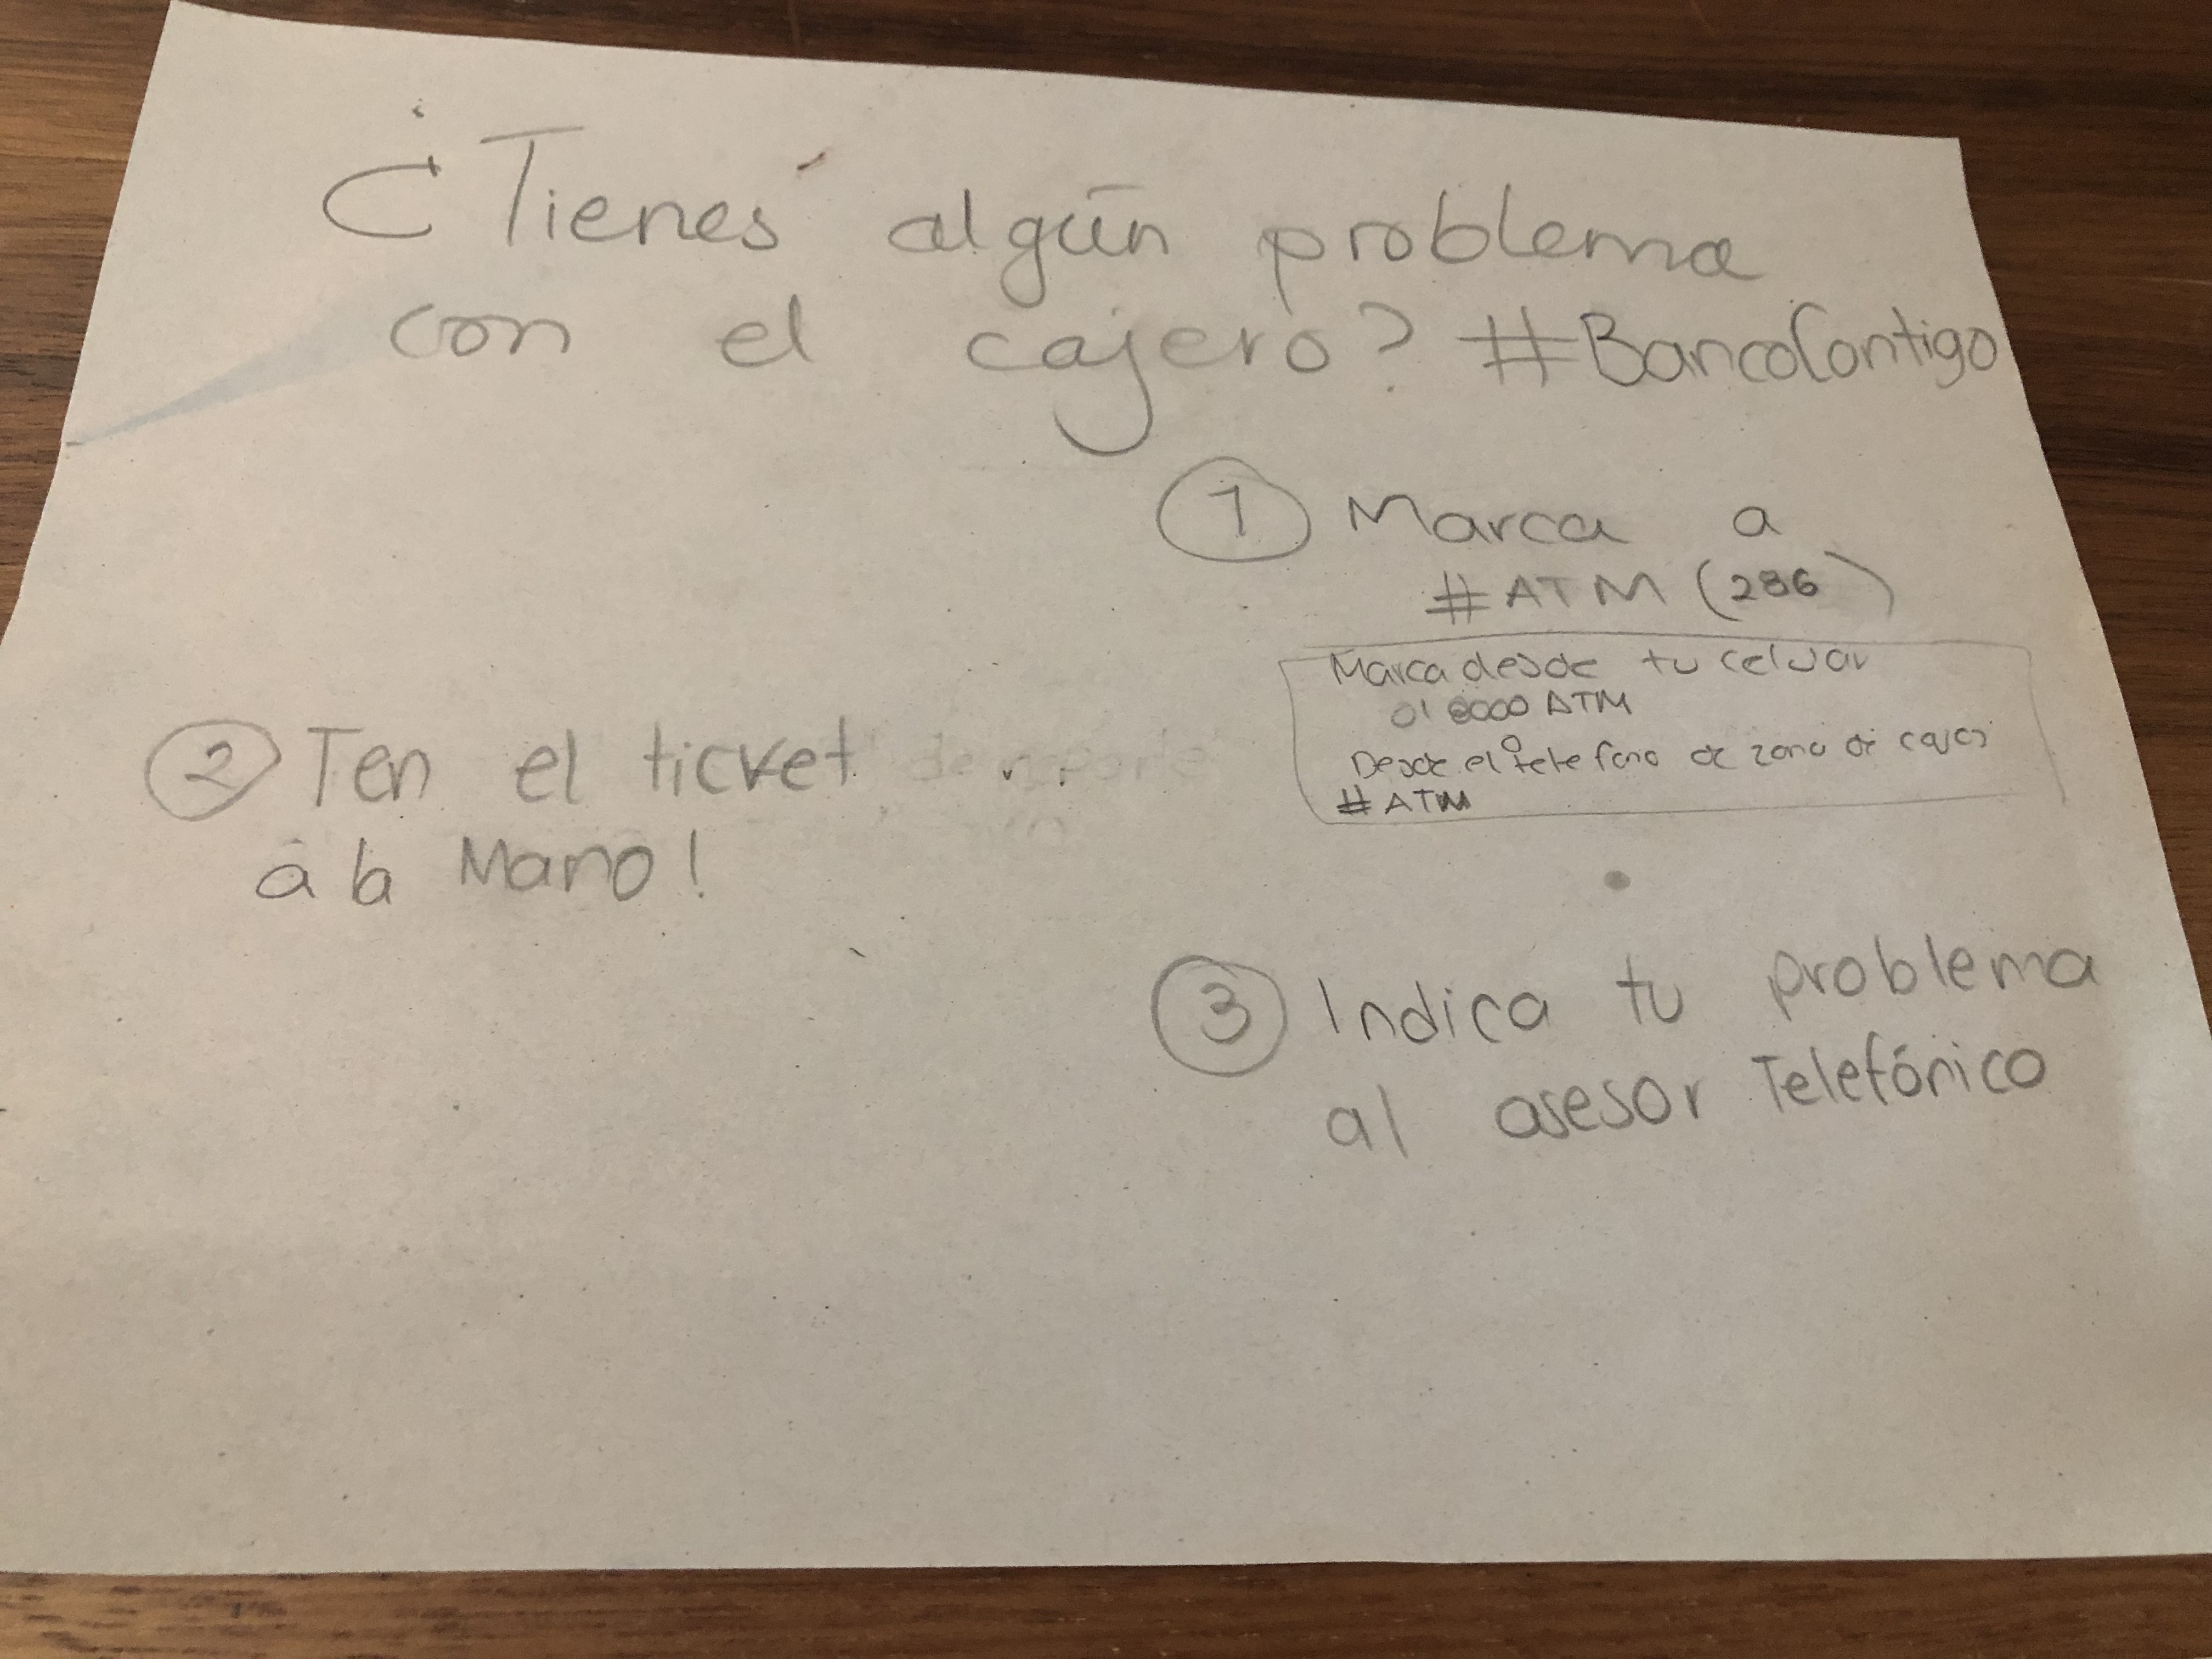 ¿Tienes algún problema
con el cajero? #BancoContigo
① Marca a
#ATM (286)
Marca desde tu celular
01 8000 ATM
Desde el telefono de zona de
#ATM
② Ten el ticket
a la Mano!
③ Indica tu problema
al asesor Telefónico